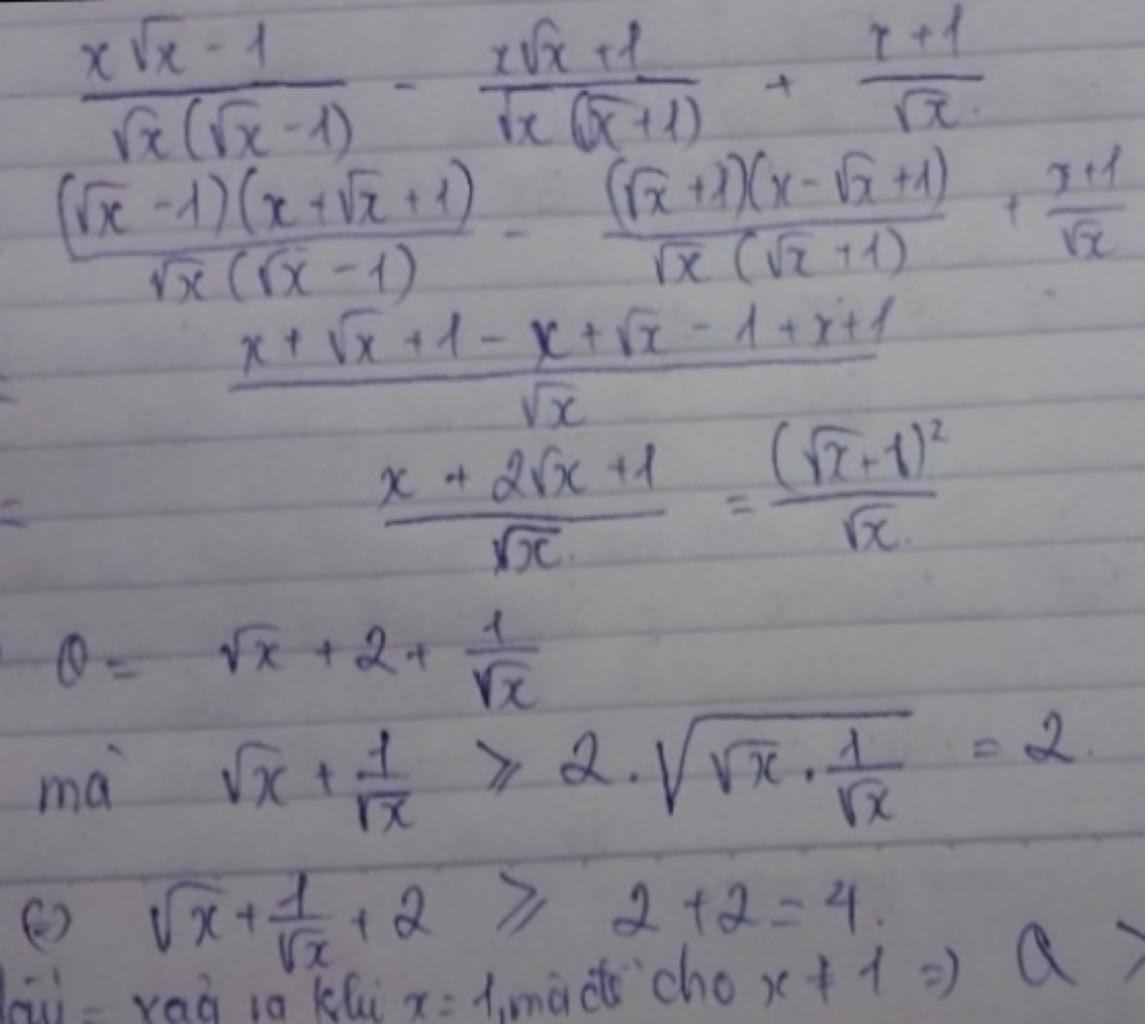 (x√x - 1)/(√x(√x - 1)) - (x√x + 1)/(√x(√x + 1)) + (x + 1)/√x.
((√x - 1)(x + √x + 1))/(√x(√x - 1)) - ((√x + 1)(x - √x + 1))/(√x(√x + 1)) + (x + 1)/√x
= (x + √x + 1 - x + √x - 1 + x + 1)/√x
= (x + 2√x + 1)/√x. = (√x + 1)²/√x.
Q = √x + 2 + 1/√x
mà √x + 1/√x ≥ 2.√(√x . 1/√x) = 2.
√x + 1/√x + 2 ≥ 2 + 2 = 4.
= xảy ra khi x = 1, mà đề cho x ≠ 1 => Q >